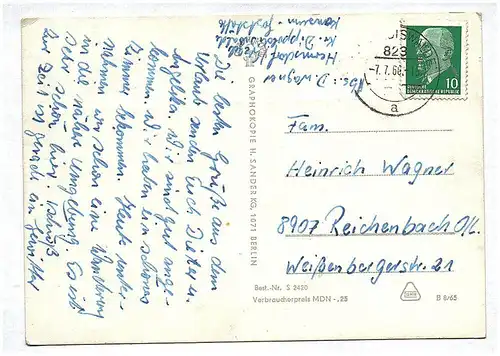 Die besten Grüße aus dem
Urlaub senden Euch Dieter u.
Angelika. Wir sind gut ange-
kommen. Wir haben ein schönes
Zimmer bekommen. Heute unter-
nahmen wir schon eine Wanderung
in die nähere Umgebung. Es ist
sehr schön hier.
Zur Zeit ist gerade ein Gewitter
Abs.: D. Wagner
Hermsdorf
Kr. Dippoldiswalde
Konsum Gaststätte
GRAPHOKOPIE H. SANDER KG, 1071 BERLIN
823
7.7.66
a
10
DEUTSCHE
DEMOKRATISCHE REPUBLIK
Fam.
Heinrich Wagner
8907 Reichenbach O/L.
Weißenbergerstr. 21
Best.-Nr. S 2420
Verbraucherpreis MDN -,25
B 8/65